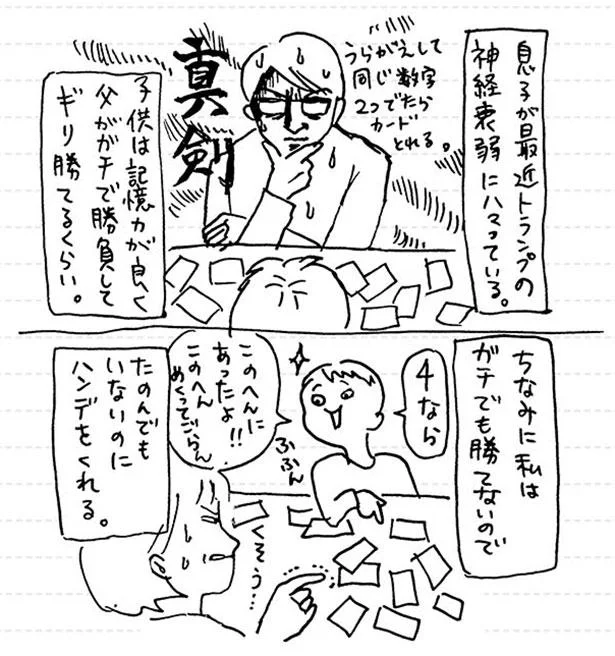 息子が最近トランプの
神経衰弱にハマっている。
うらがえして
同じ数字
2つでたら
カード
とれる。
真剣
子供は記憶力が良く
父がガチで勝負して
ギリ勝てるくらい。
ちなみに私は
ガチでも勝てないので
4なら
ふふん
このへんに
あったよ!!
このへん
めくってごらん
たのんでも
いないのに
ハンデをくれる。
くそう…